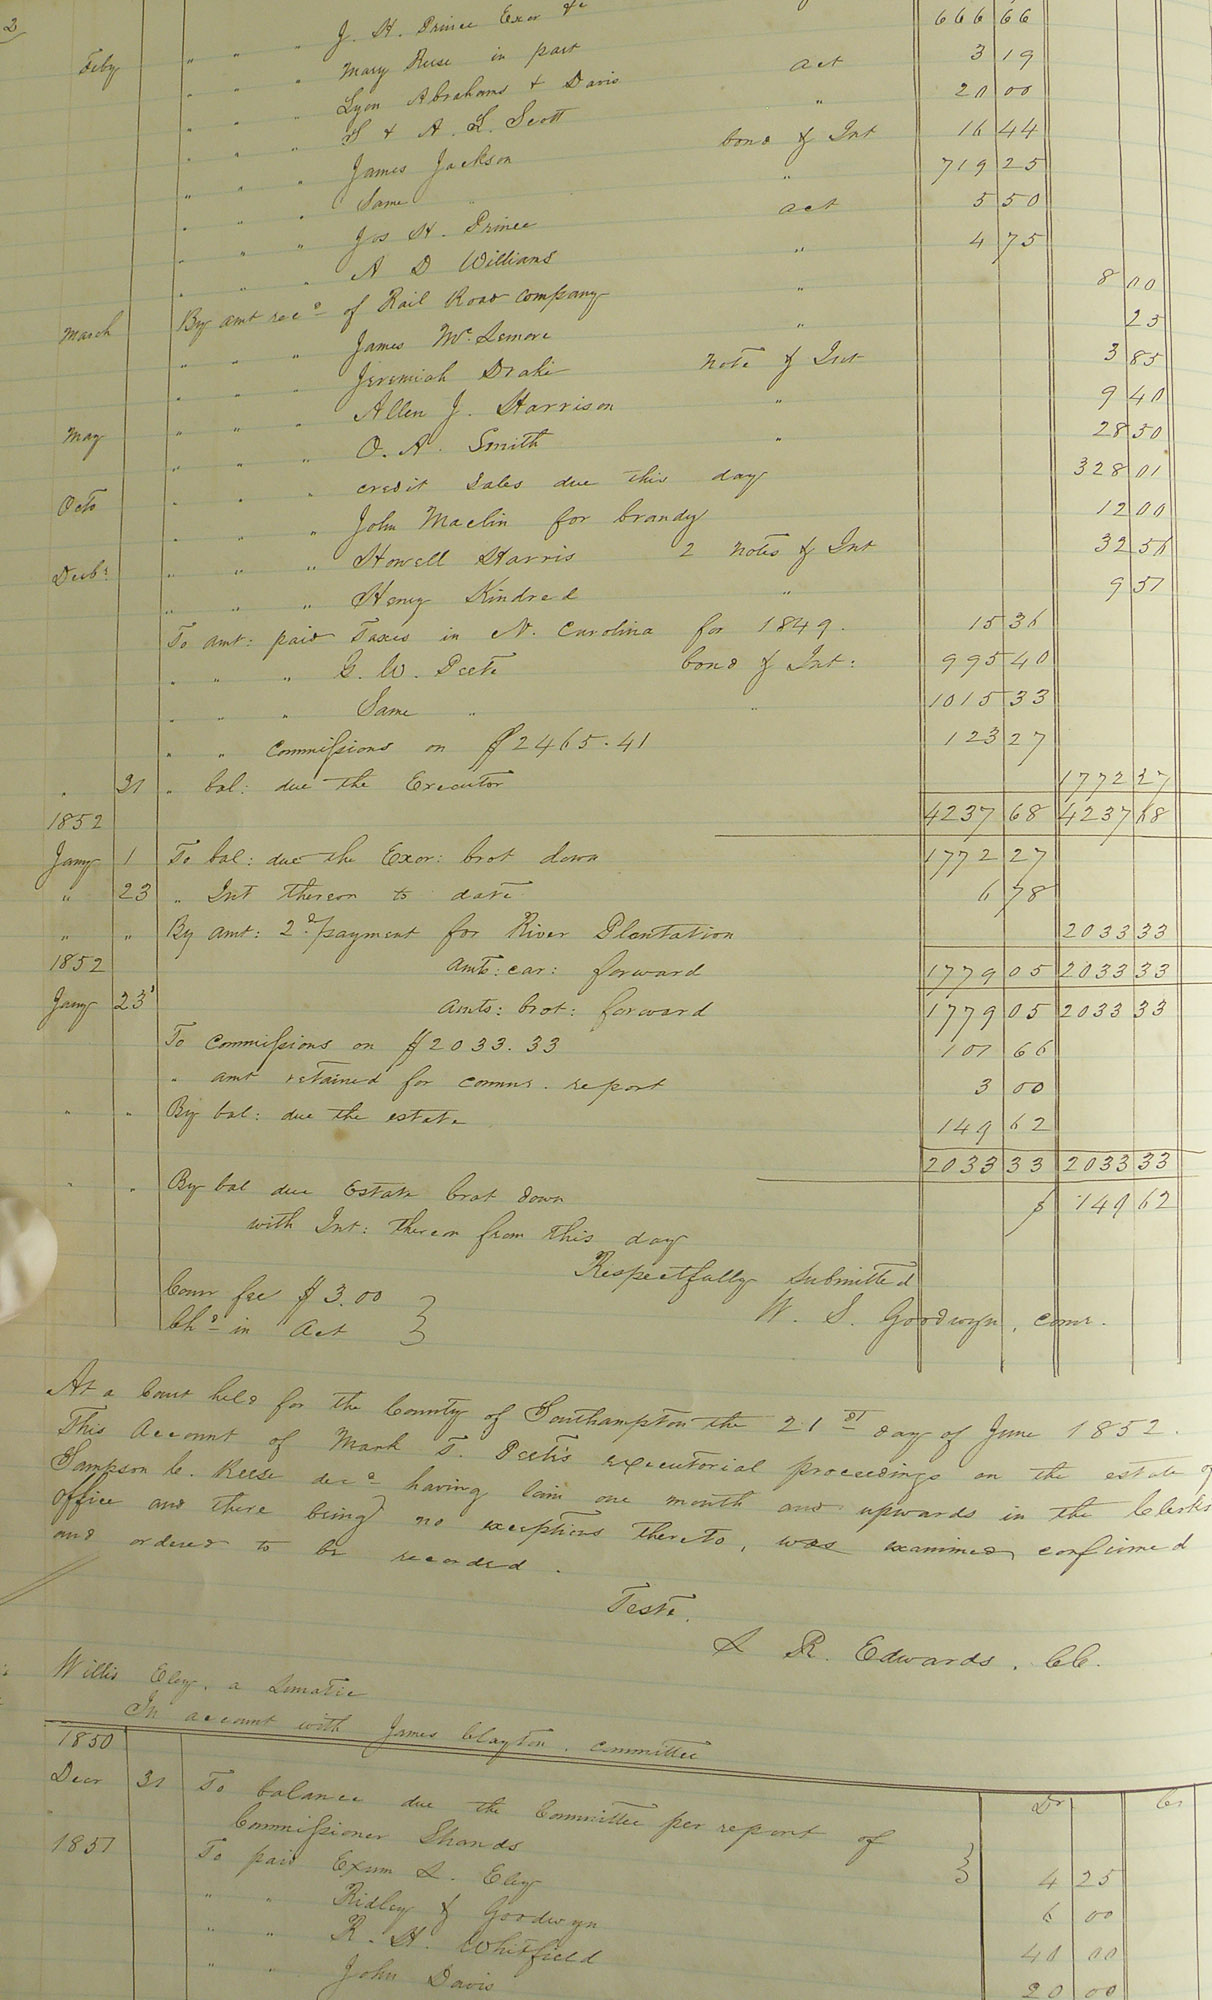 2
" " " J. H. Prince Exor &c 666 66
Feby " " " Mary Reese in part act 3 19
" " " Lyon Abrahams & Davis " 20 00
" " " S & A. L. Scott bond & Int 16 44
" " " James Jackson " 719 25
" " " Same " act 5 50
" " " Jos H. Prince " 4 75
" " " A D Williams " 8 00
March By amt recd of Rail Road company " 25
" " " James McLemore note & Int 3 85
" " " Jeremiah Drake " 9 40
" " " Allen J. Harrison " 28 50
May " " " O. A. Smith 328 01
" " " credit sales due this day 12 00
Octo " " " John Maclin for brandy 32 56
" " " Howell Harris 2 notes & Int 9 51
Decbr " " " Henry Kindred "
To amt: paid Taxes in N. Carolina for 1849. 15 36
" " " G. W. Peete bond & Int: 995 40
" " " Same " " 1015 33
" " commissions on $2465.41 123 27
" 31 " bal: due the Executor 1772 27
4237 68 4237 68
1852
Jany 1 To bal: due the Exor: brot down 1772 27
" 23 " Int thereon to date 6 78
" " By amt: 2d payment for River Plantation 2033 33
1852 amts: car: forward 1779 05 2033 33
Jany 23 amts: brot: forward 1779 05 2033 33
To commissions on $2033.33 101 66
" amt retained for comnr. report 3 00
" " By bal: due the estate 149 62
2033 33 2033 33
" " By bal due Estate brot down $ 149 62
with Int: thereon from this day
Respectfully submitted
Comr fee $3.00 } W. S. Goodwyn, comr.
Chd in Act
At a Court held for the County of Southampton the 21st day of June 1852.
This Account of Mark T. Peete's executorial proceedings on the estate of
Sampson C. Reese decd having lain one month and upwards in the Clerks
office and there being no exceptions thereto, was examined confirmed
and ordered to be recorded.
Teste.
L R. Edwards. CC.
Willis Eley, a Lunatic
In account with James Clayton, committee
1850 Dr Cr
Decr 31 To balance due the Committee per report of
" Commissioner Shands } 4 25
1851 To paid Exum L. Eley 6 00
" " Ridley & Goodwyn 40 00
" " R. H. Whitfield 20 00
" " John Davis